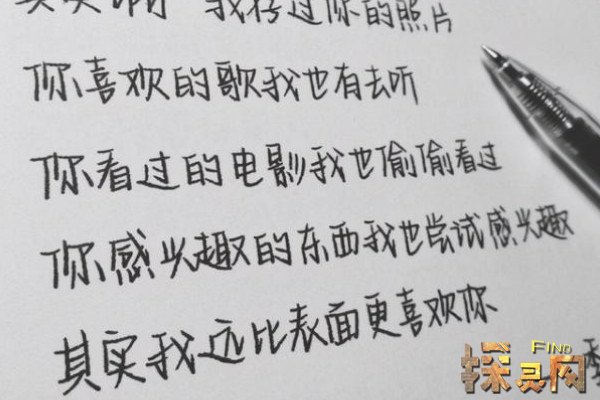 我存过你的照片
你喜欢的歌我也有去听
你看过的电影我也偷偷看过
你感兴趣的东西我也尝试感兴趣
其实我远比表面更喜欢你
FIND
探灵网